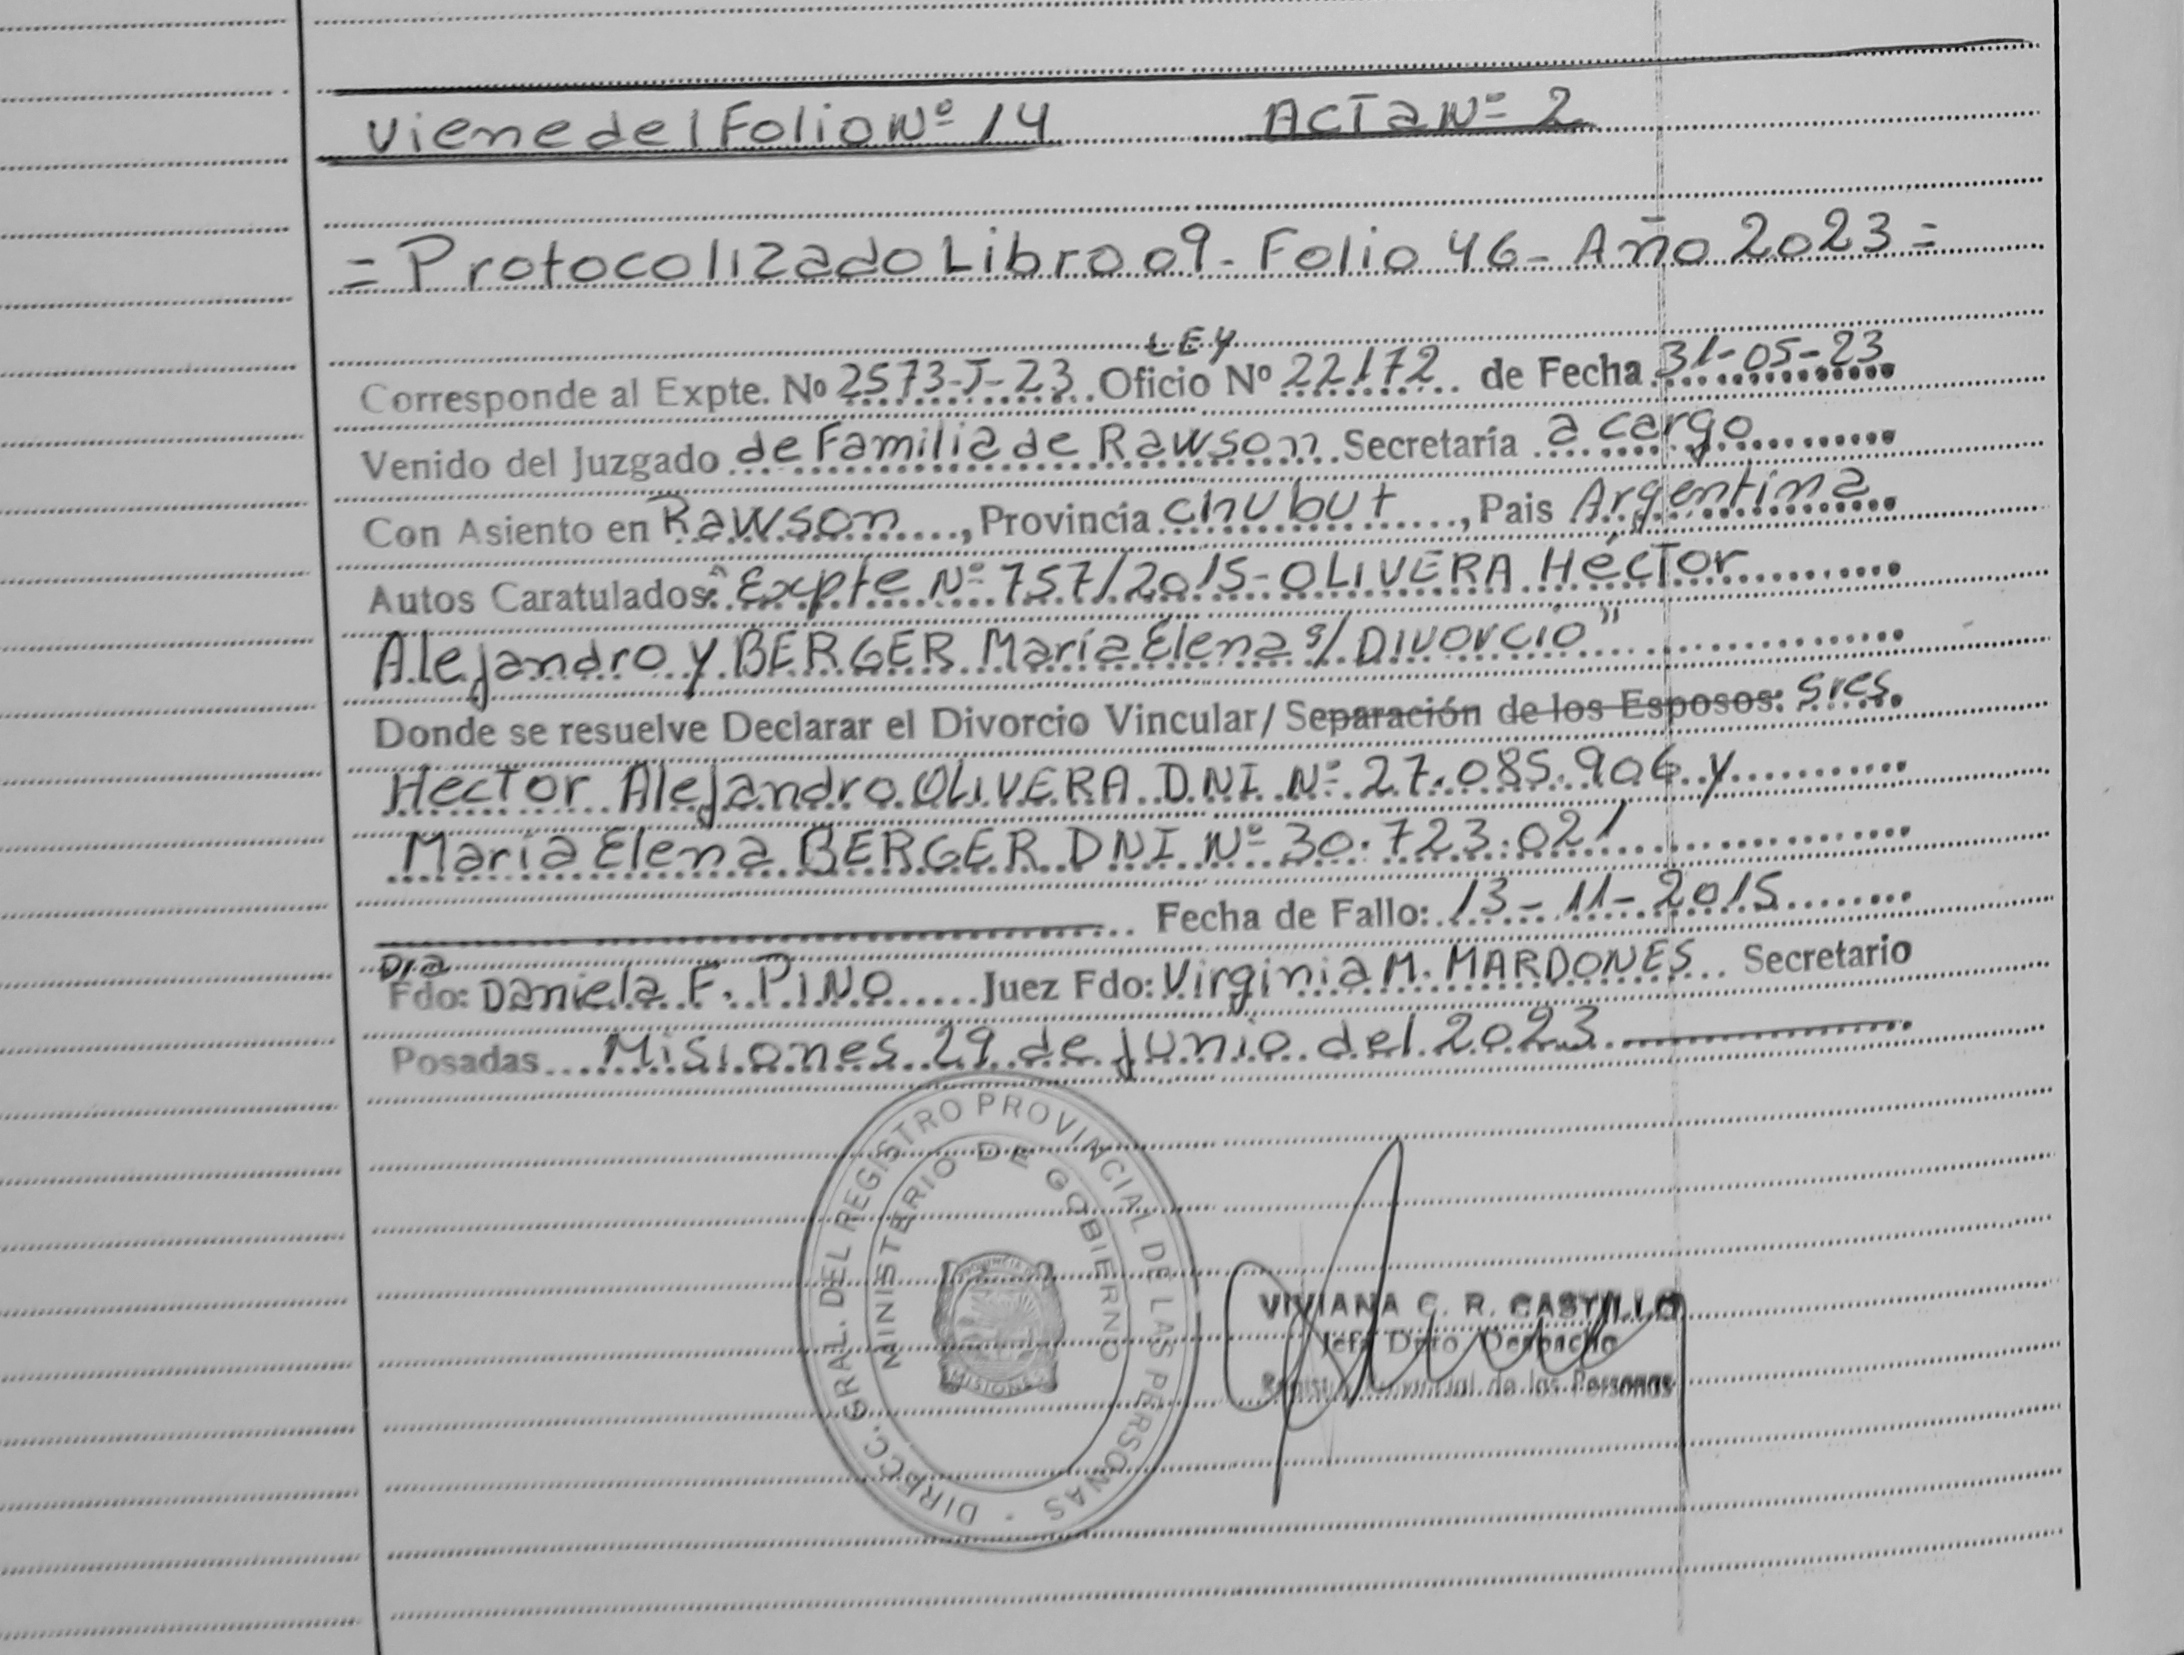 Viene del Folio Nº 14 ACTA Nº 2
= Protocolizado Libro 09 - Folio 46 - Año 2023 =
LEY
Corresponde al Expte. No 2573-J-23 Oficio Nº 22172 de Fecha 31-05-23
Venido del Juzgado de Familia de Rawson Secretaría a cargo
Con Asiento en Rawson, Provincia Chubut, Pais Argentina
Autos Caratulados: "Expte Nº 757/2015 - OLIVERA Héctor
Alejandro y BERGER María Elena s/ Divorcio"
Donde se resuelve Declarar el Divorcio Vincular/ Separación de los Esposos: Sres.
Hector Alejandro OLIVERA DNI Nº 27.085.906 y
María Elena BERGER DNI Nº 30.723.021
Fecha de Fallo: 13-11-2015
Dra
Fdo: Daniela F. PINO Juez Fdo: Virginia M. MARDONES Secretario
Posadas Misiones 29 de junio del 2023
DIRECC. GRAL. DEL REGISTRO PROVINCIAL DE LAS PERSONAS
MINISTERIO DE GOBIERNO
PROVINCIA
MISIONES
VIVIANA C. R. CASTILLO
Jefa Dpto Despacho
Registro Provincial de las Personas